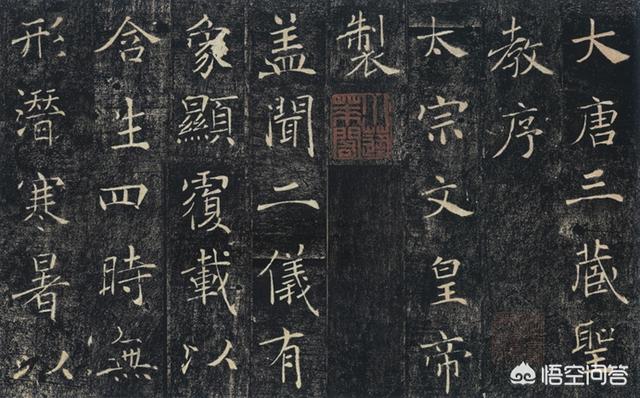 大唐三藏聖
教序
太宗文皇帝
製
小蓬
萊閣
盖聞二儀有
象顯覆載以
含生四時無
形潛寒暑以
悟空问答